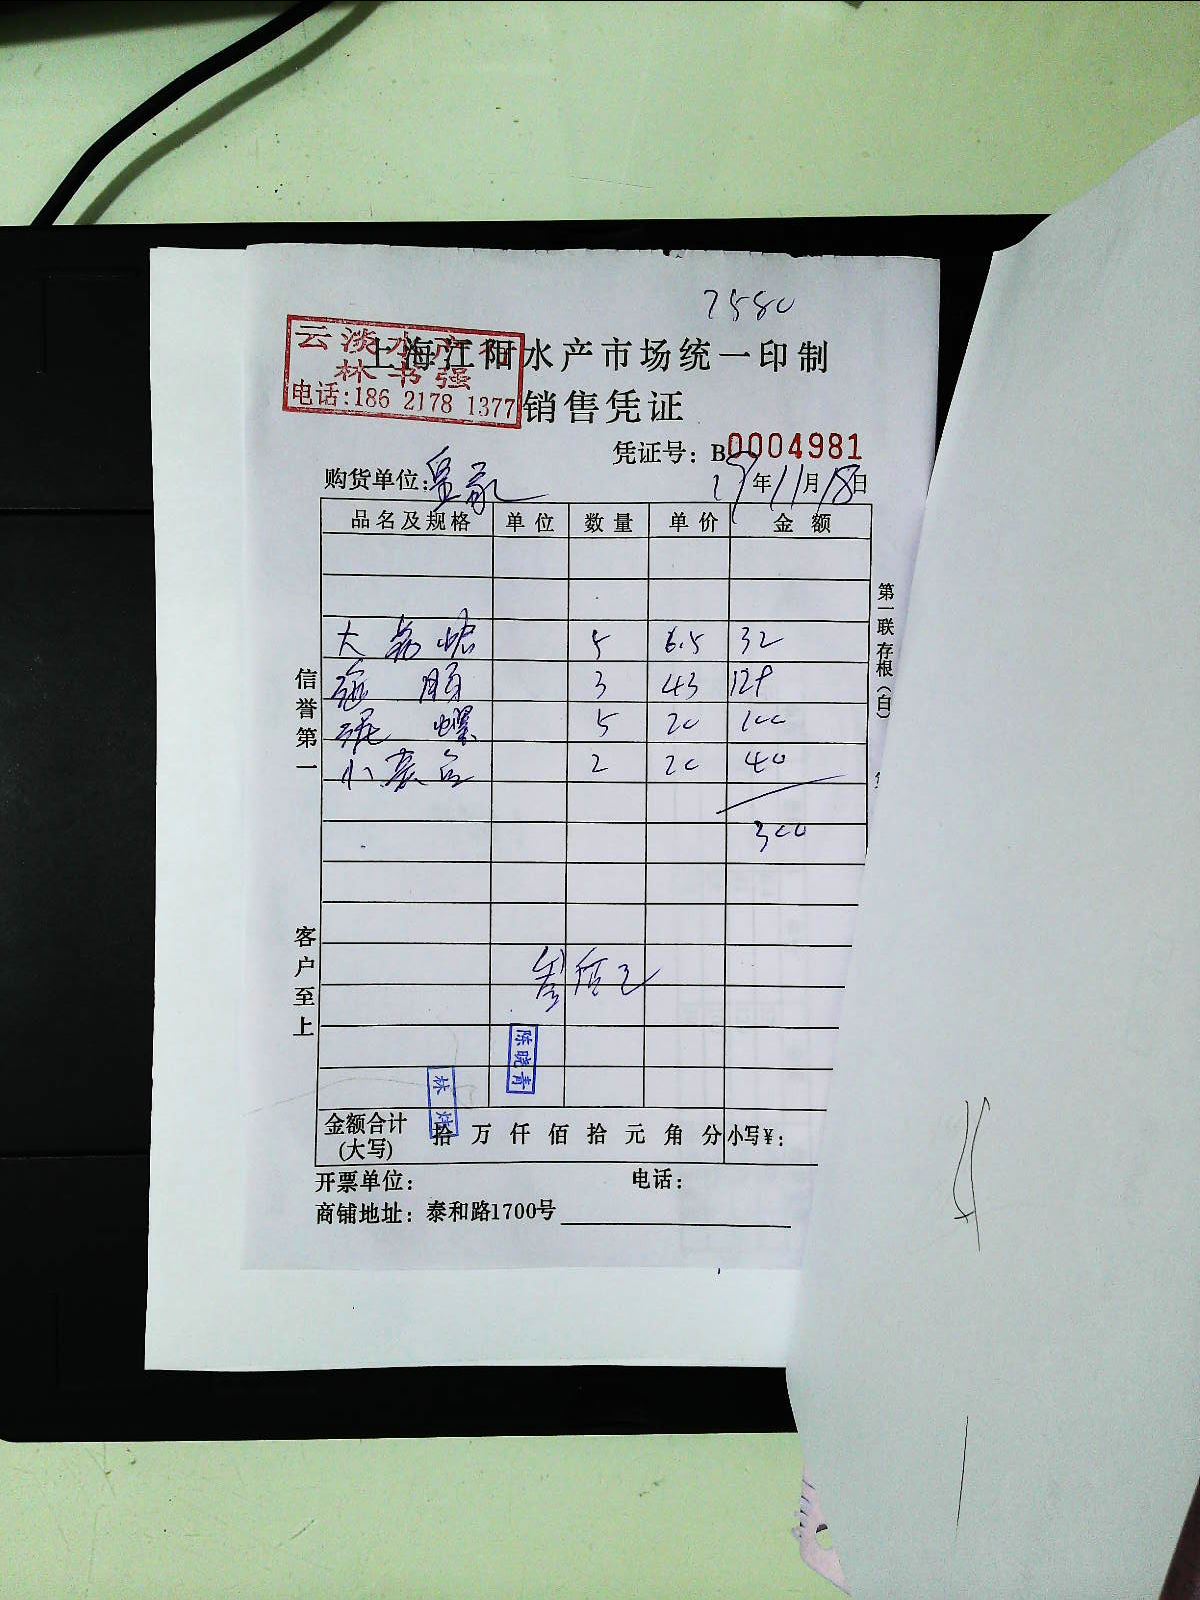 7580
云淡水产行
林书强
电话:186 2178 1377
上海江阳水产市场统一印制
销售凭证
凭证号: B0004981
购货单位:皇家
19年11月18日
品名及规格 单位 数量 单价 金额
大 5 6.5 32
3 43 129
泥螺 5 20 100
小 2 20 40
300
第一联 存根(白)
信誉第一
客户至上
陈晓青
林
金额合计(大写) 拾万仟佰拾元角分 小写¥:
开票单位: 电话:
商铺地址: 泰和路1700号